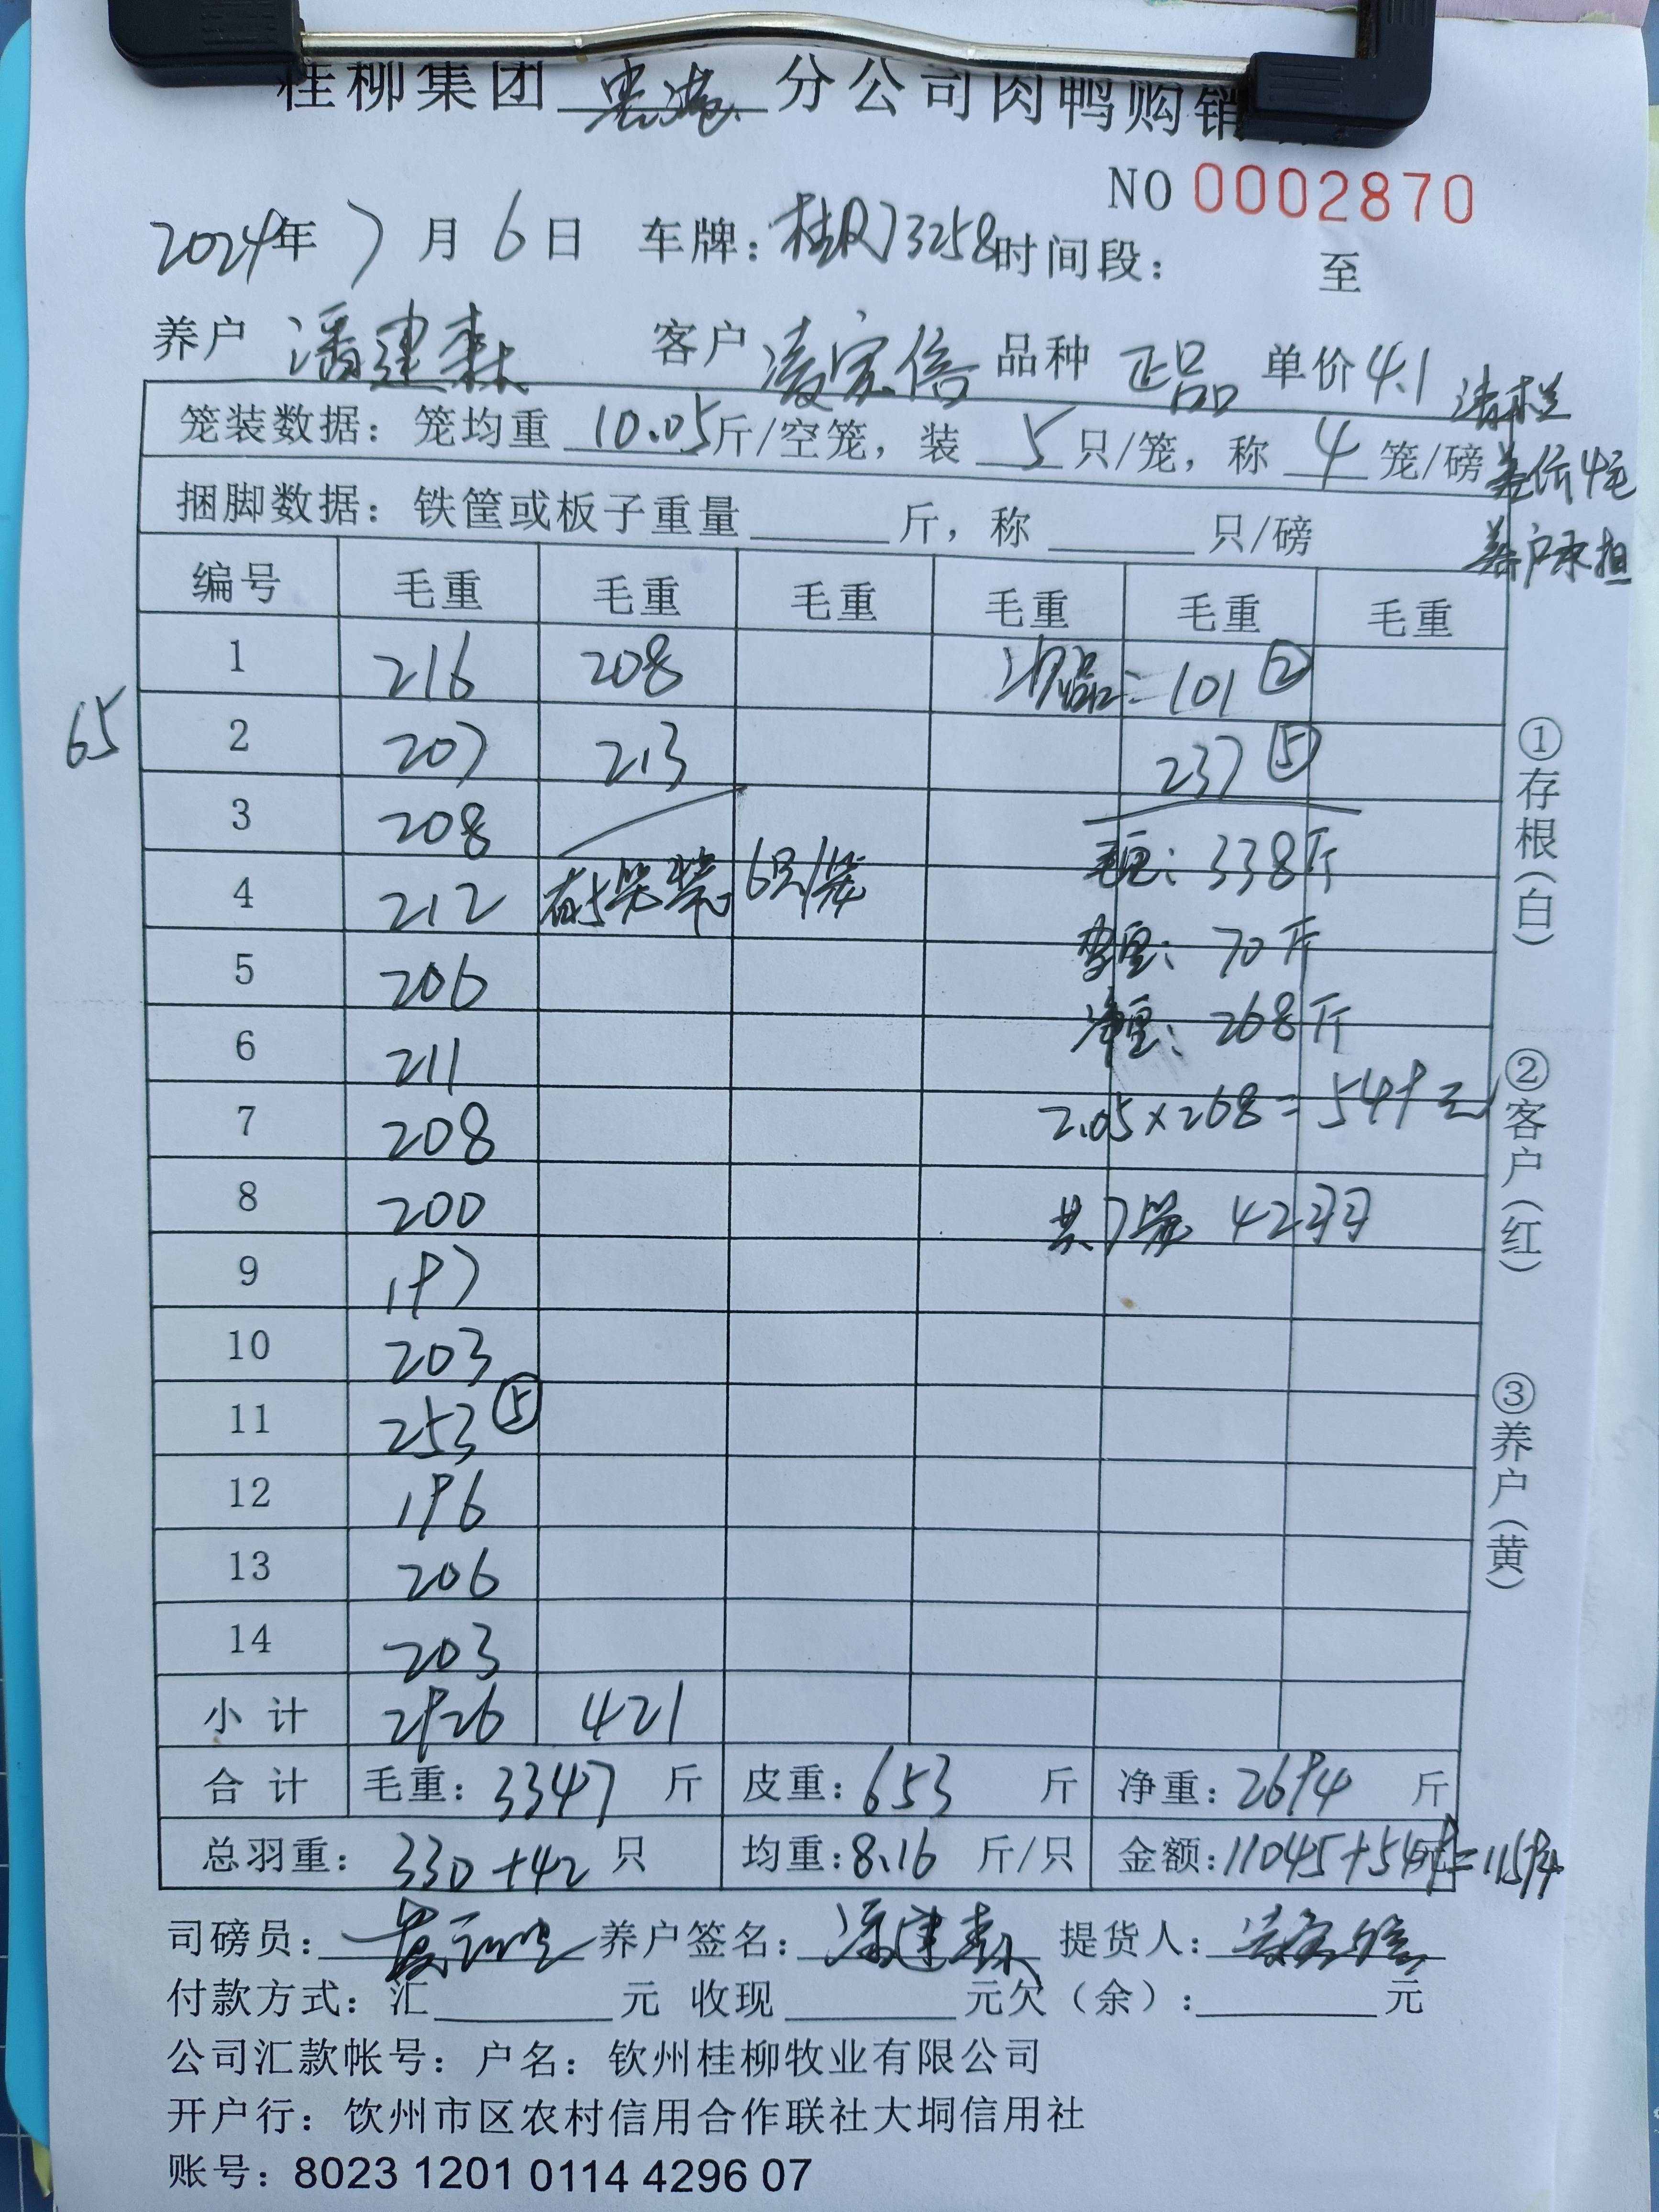 桂柳集团 贵港 分公司肉鸭购销
NO 0002870
2024年 7 月 6 日 车牌：桂R73258 时间段： 至
养户 潘建森 客户 凌家信 品种 正品 单价 4.1 清栏
笼装数据：笼均重 10.05 斤/空笼，装 5 只/笼，称 4 笼/磅 差价4毛
捆脚数据：铁筐或板子重量 斤，称 只/磅 养户承担
编号 毛重 毛重 毛重 毛重 毛重 毛重
1 216 208 次品：101 ②
65 2 207 213 237 ⑤
3 208 毛重：338斤
4 212 有5笼装 6只/笼
5 206 皮重：70斤
6 211 净重：268斤
7 208 2.05×268=549元
8 200 共7笼 42羽
9 197
10 203
11 253 ⑤
12 196
13 206
14 203
小计 2926 421
合计 毛重：3347 斤 皮重：653 斤 净重：2694 斤
总羽重：330+42 只 均重：8.16 斤/只 金额：11045+549=11594
司磅员： 养户签名：潘建森 提货人：凌家信
付款方式：汇 元 收现 元欠（余）： 元
公司汇款帐号：户名：钦州桂柳牧业有限公司
开户行：饮州市区农村信用合作联社大垌信用社
账号：8023 1201 0114 4296 07
①存根（白）
②客户（红）
③养户（黄）